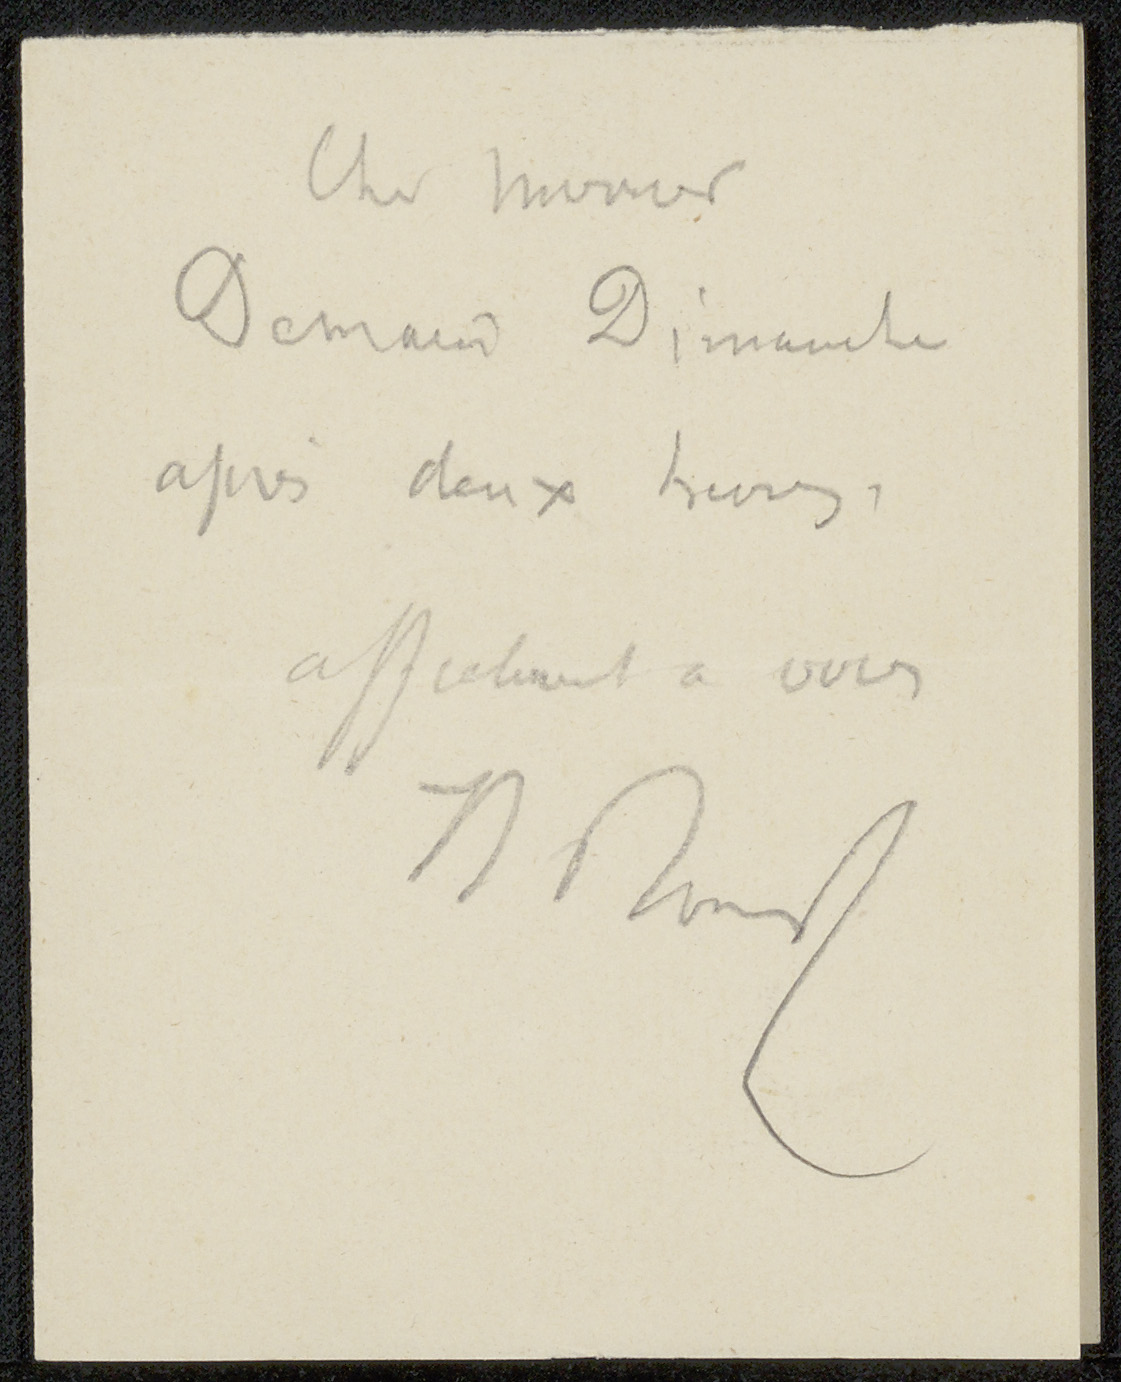 Cher Monsieur
Demain Dimanche
après deux heures,
affectment a vous